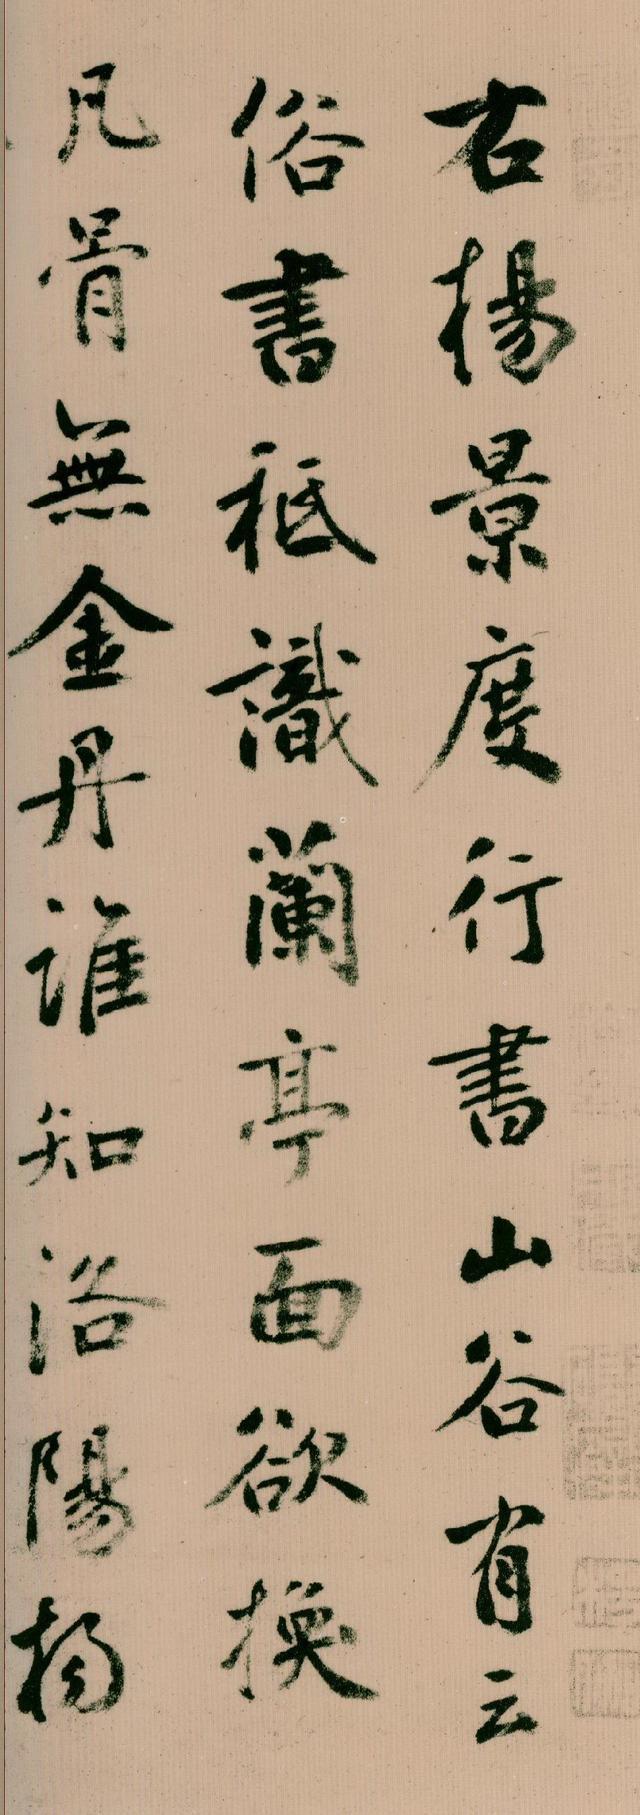 右楊景度行書山谷有云
俗書秪識蘭亭面欲換
凡骨無金丹誰知洛陽楊